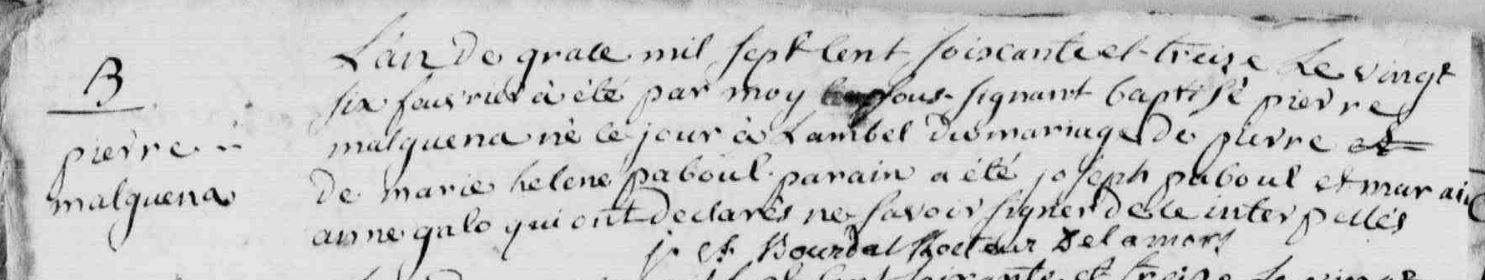 B
pierre
malquena
L'an de grace mil sept cent soixante et treize le vingt
six feuvrier à été par moy sous-signant baptisé pierre
malquena né le jour à Lambel du mariage de pierre et
de marie helene paboul. parain a été joseph paboul et maraine
anne galo qui ont declarés ne savoir signer de ce interpellés
j. f. Bourdat Recteur Delamors